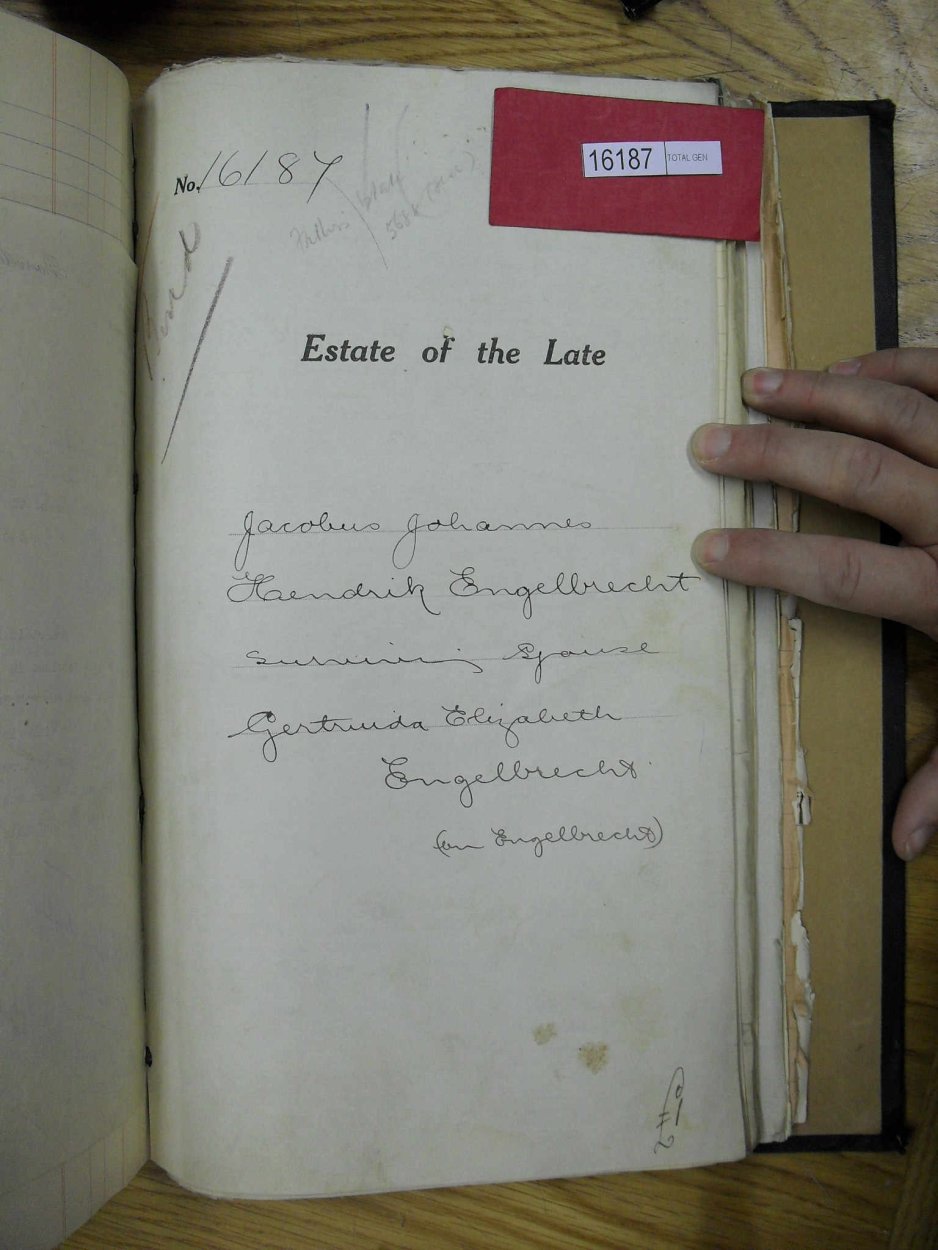 No. 16187
16187 TOTAL GEN
Estate of the Late
Jacobus Johannes
Hendrik Engelbrecht
surviving Spouse
Gertruida Elizabeth
Engelbrecht.
(born Engelbrecht)
£1